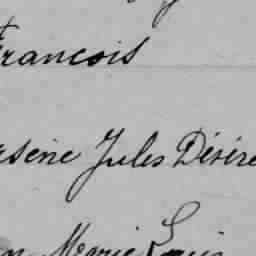 François
rsène Jules Désiré
Marie Louis